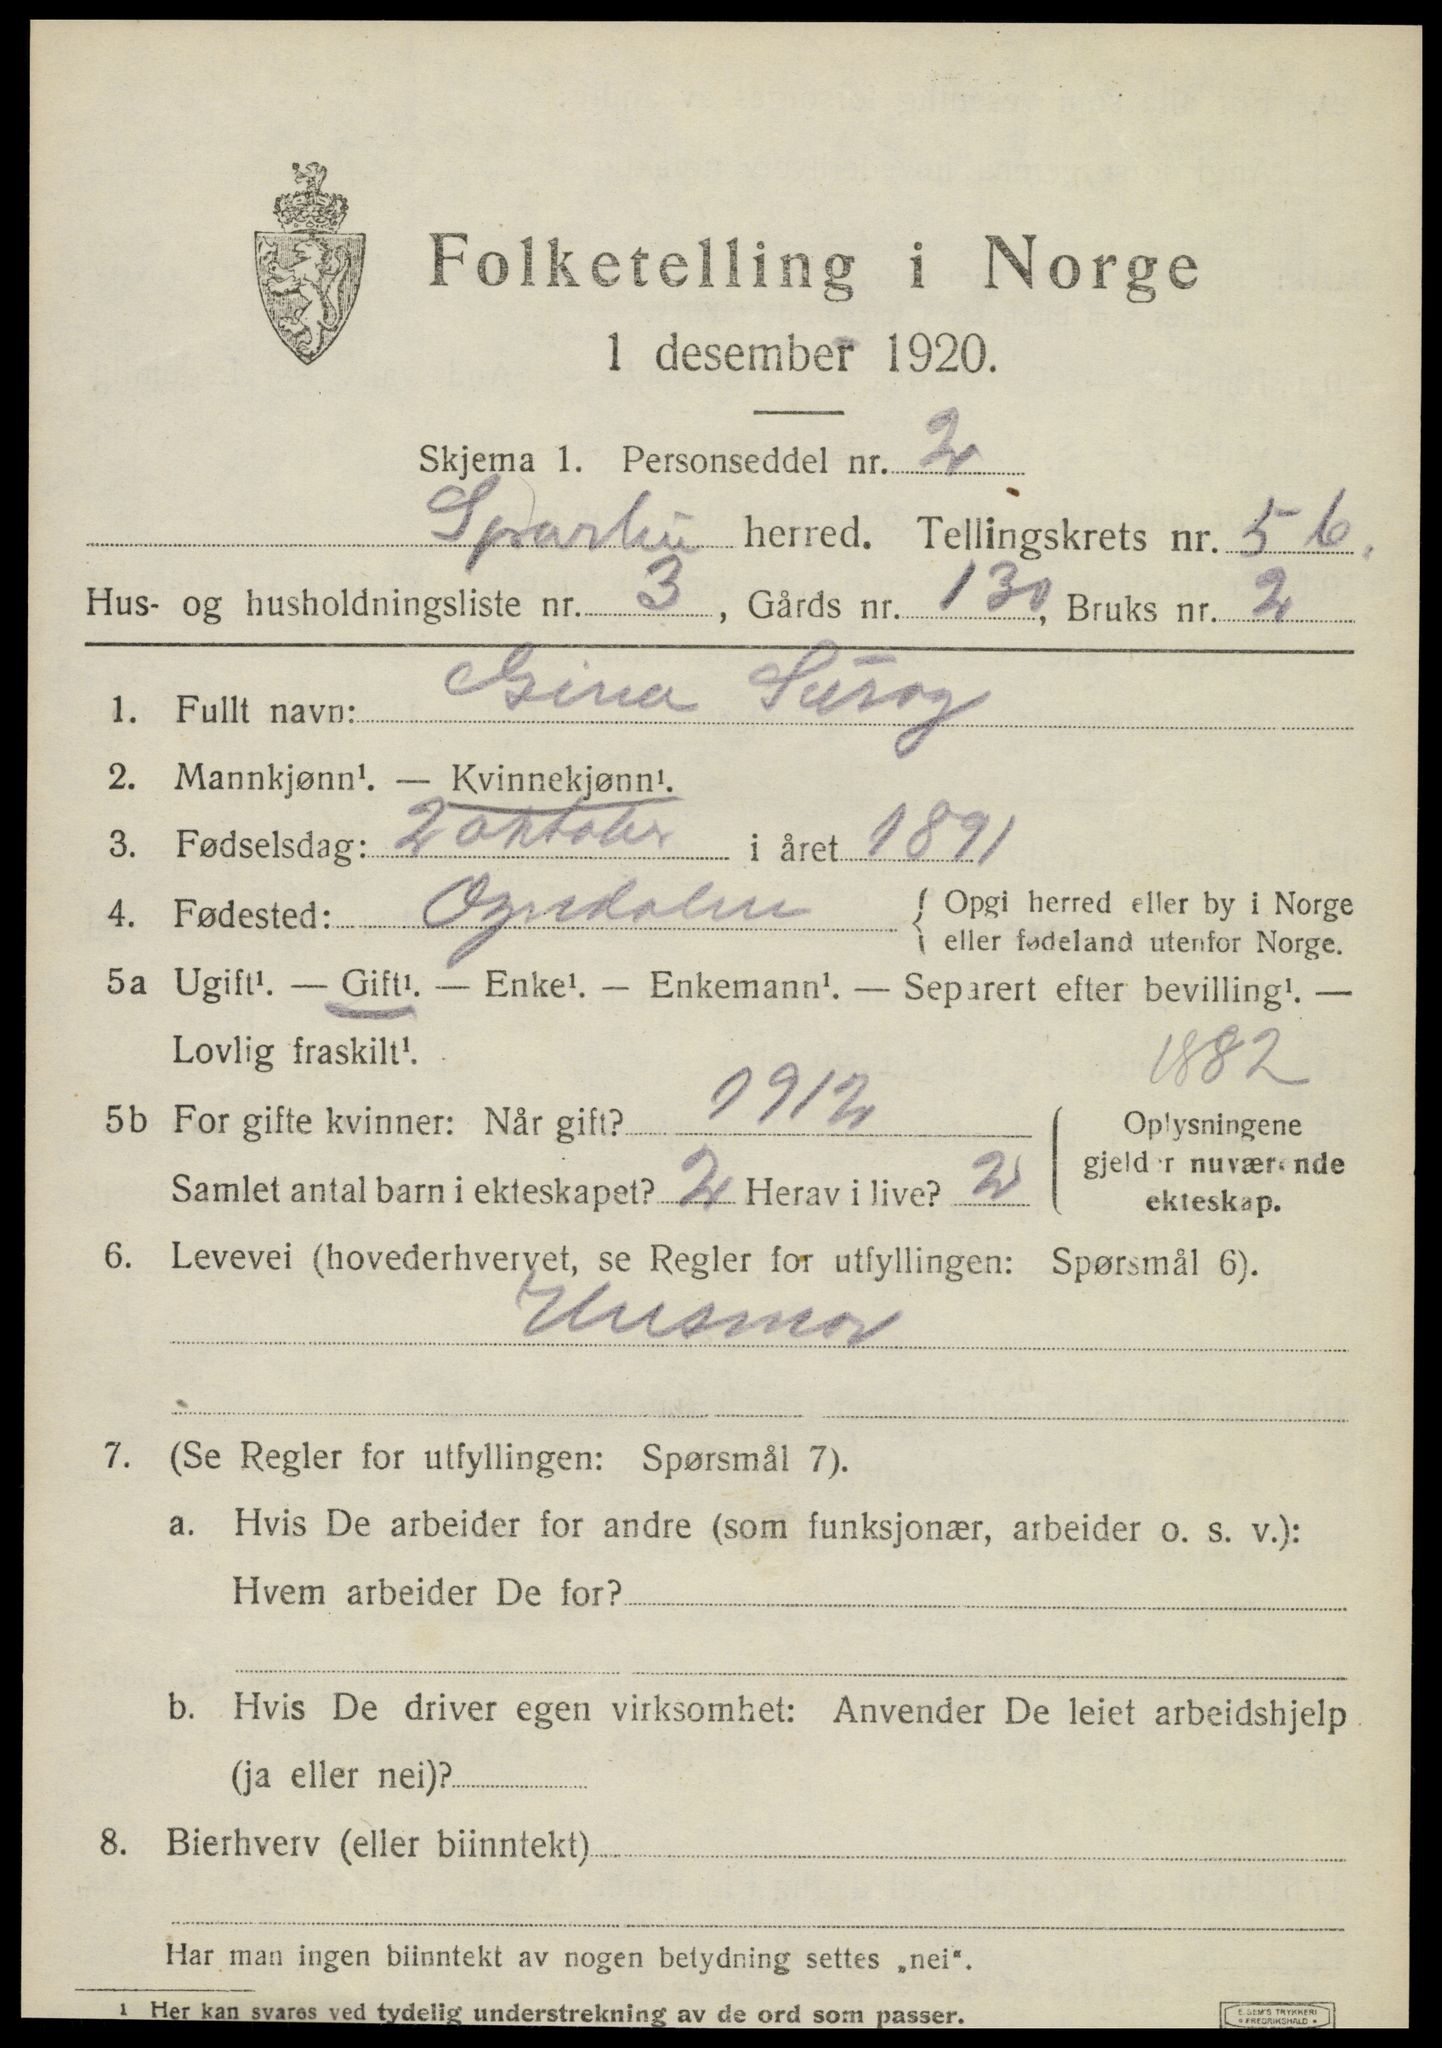 Folketelling i Norge
1 desember 1920.
Skjema 1. Personseddel nr. 2
Sparbu herred. Tellingskrets nr. 5 b.
Hus- og husholdningsliste nr. 3, Gårds nr. 130, Bruks nr. 2
1. Fullt navn: Gina
2. Mannkjønn¹. — Kvinnekjønn¹.
3. Fødselsdag: 2 oktober i året 1891
4. Fødested: Ogndalen { Opgi herred eller by i Norge
eller fødeland utenfor Norge.
5a Ugift¹. — Gift¹. — Enke¹. — Enkemann¹. — Separert efter bevilling¹. —
Lovlig fraskilt¹.
1882
5b For gifte kvinner: Når gift? 1912
Samlet antal barn i ekteskapet? 2 Herav i live? 2
Oplysningene
gjelder nuværende
ekteskap.
6. Levevei (hovederhvervet, se Regler for utfyllingen: Spørsmål 6).
Husmor
7. (Se Regler for utfyllingen: Spørsmål 7).
a. Hvis De arbeider for andre (som funksjonær, arbeider o. s. v.):
Hvem arbeider De for?
b. Hvis De driver egen virksomhet: Anvender De leiet arbeidshjelp
(ja eller nei)?
8. Bierhverv (eller biinntekt)
Har man ingen biinntekt av nogen betydning settes „nei“.
1 Her kan svares ved tydelig understrekning av de ord som passer.
E. SEM'S TRYKKERI
FREDRIKSHALD